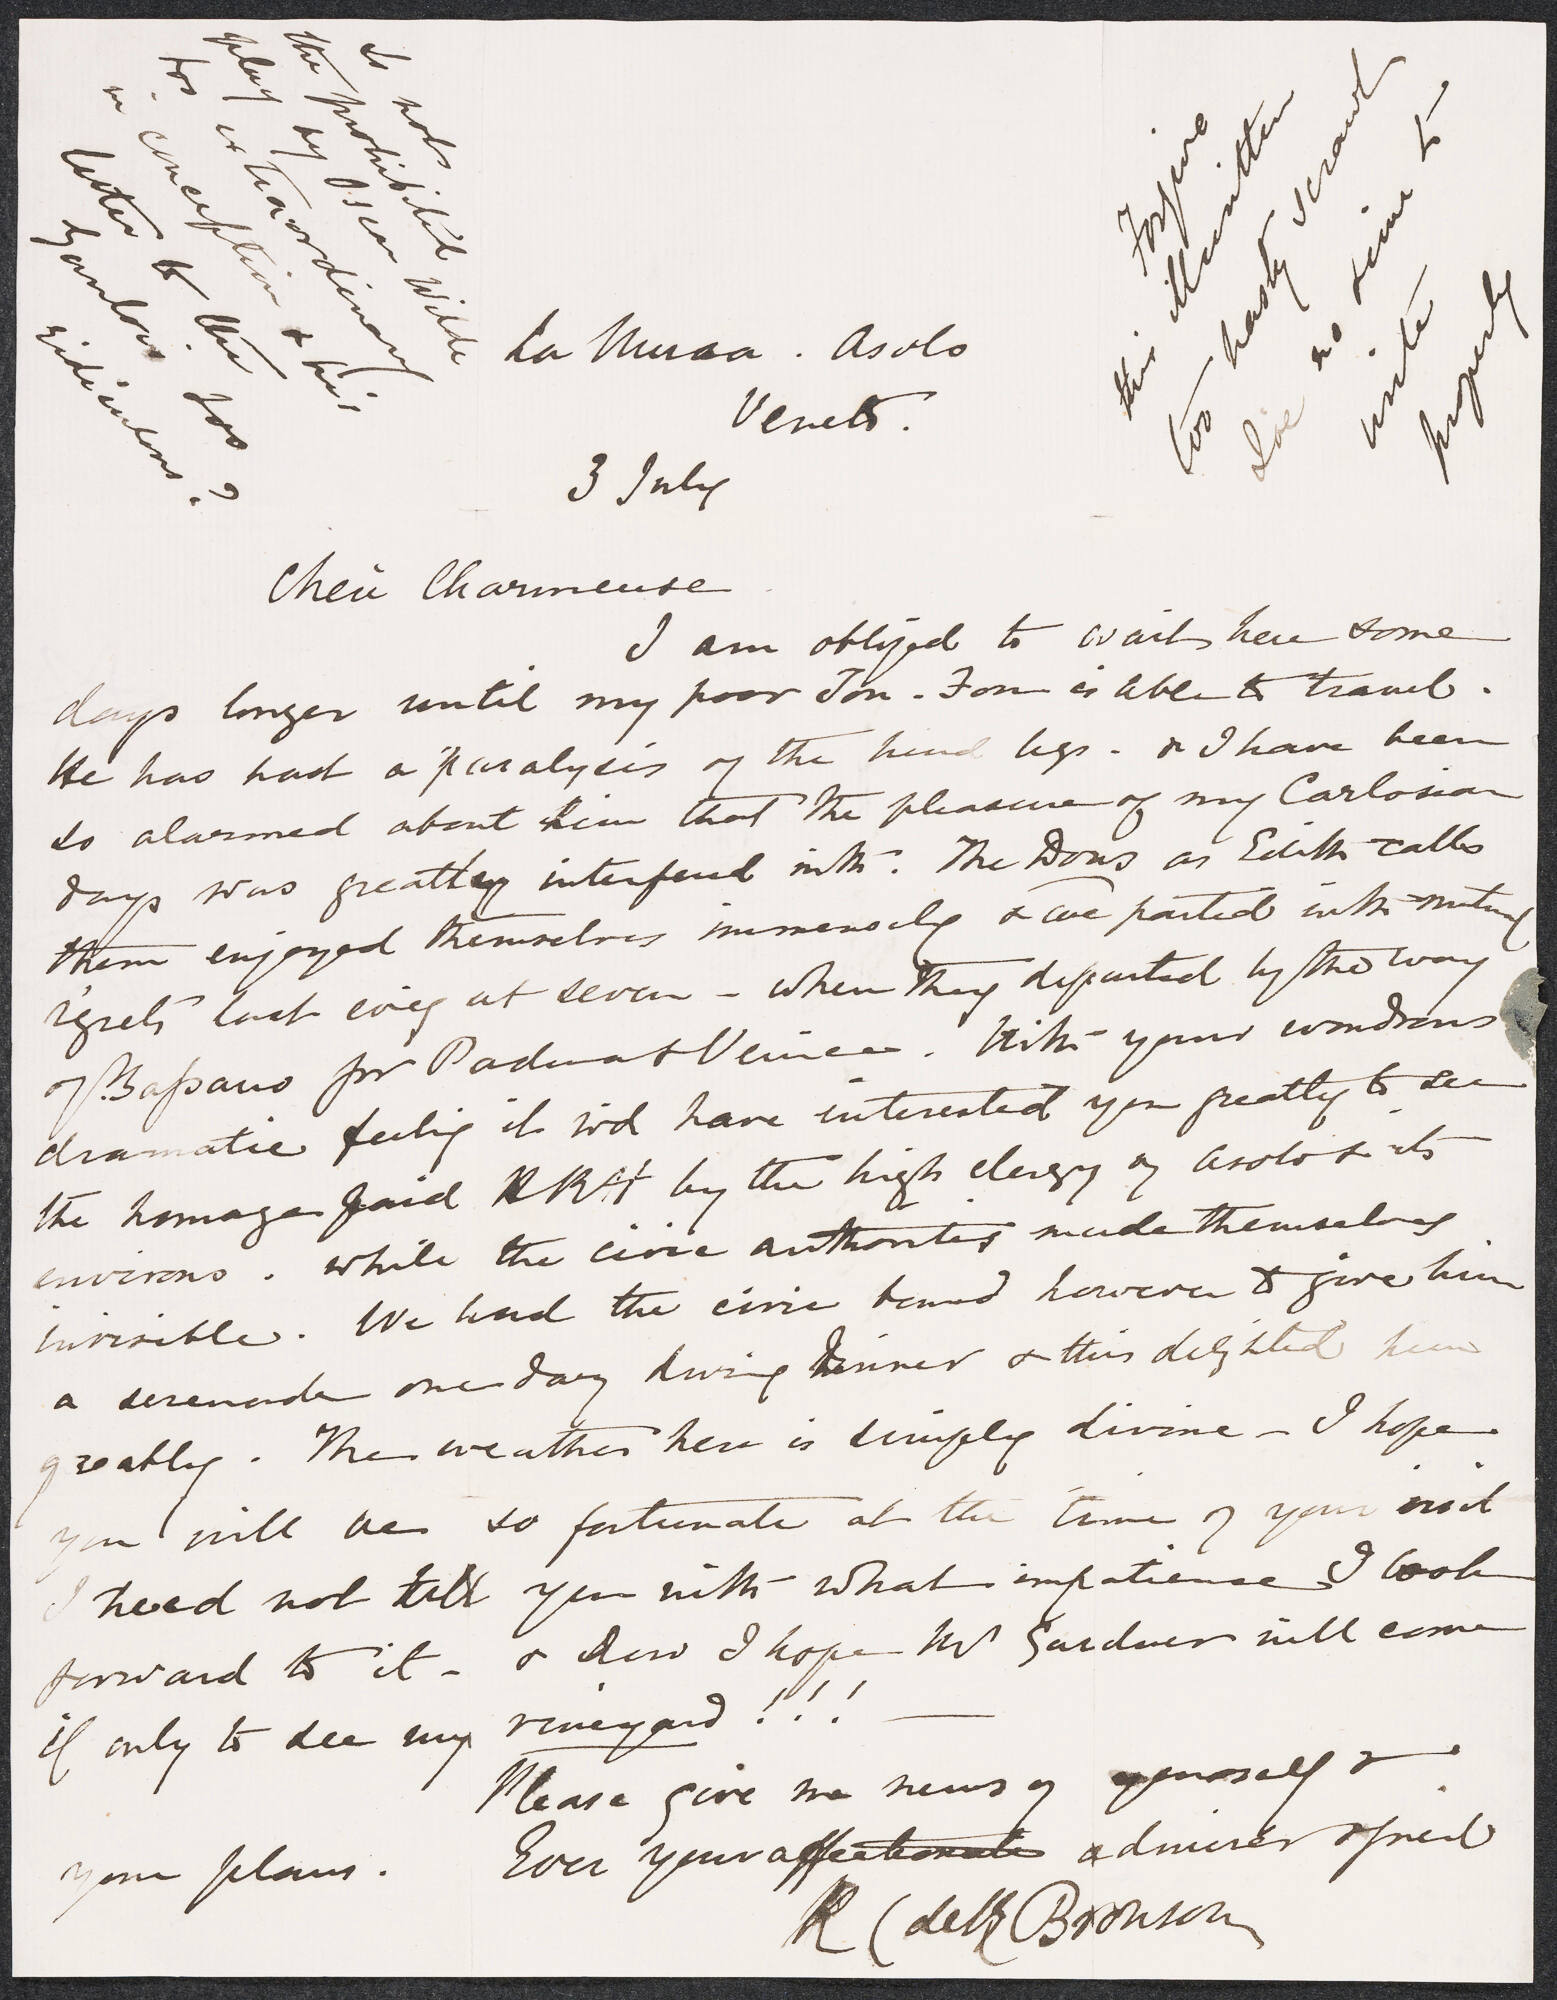 Is not
the prohibited
play by Oscar Wilde
too extraordinary
in conception & his
letter to the
Gaulois too
ridiculous?
Forgive
this illwritten
too hasty scrawl
I've no time to
write
properly
La Mura . Asolo
Veneto.
3 July
Chère Charmeuse
I am obliged to wait here some
days longer until my poor Ton-Fon is able to travel.
He has had a paralysis of the hind legs - & I have been
so alarmed about him that the pleasure of my Carlosian
days was greatly interfered with. The Dons as Edith calls
them enjoyed themselves immensely & we parted with mutual
regrets last eveg at seven - when they departed by the way
of Bassano for Padua & Venice. With your wondrous
dramatic feeling it wd have interested you greatly to see
the homage paid RRH by the high clergy of Asolo & its
environs. while the civic authorities made themselves
invisible. We had the civic band however to give him
a serenade one day during dinner & this delighted him
greatly. The weather here is simply divine - I hope
you will be so fortunate at the time of your visit
I need not tell you with what impatience I look
forward to it - & how I hope Mr Gardner will come
if only to see my vineyard!!! —
Please give me news of yourself &
your plans.
Ever your affectionate admirer & friend
K (de K) Bronson